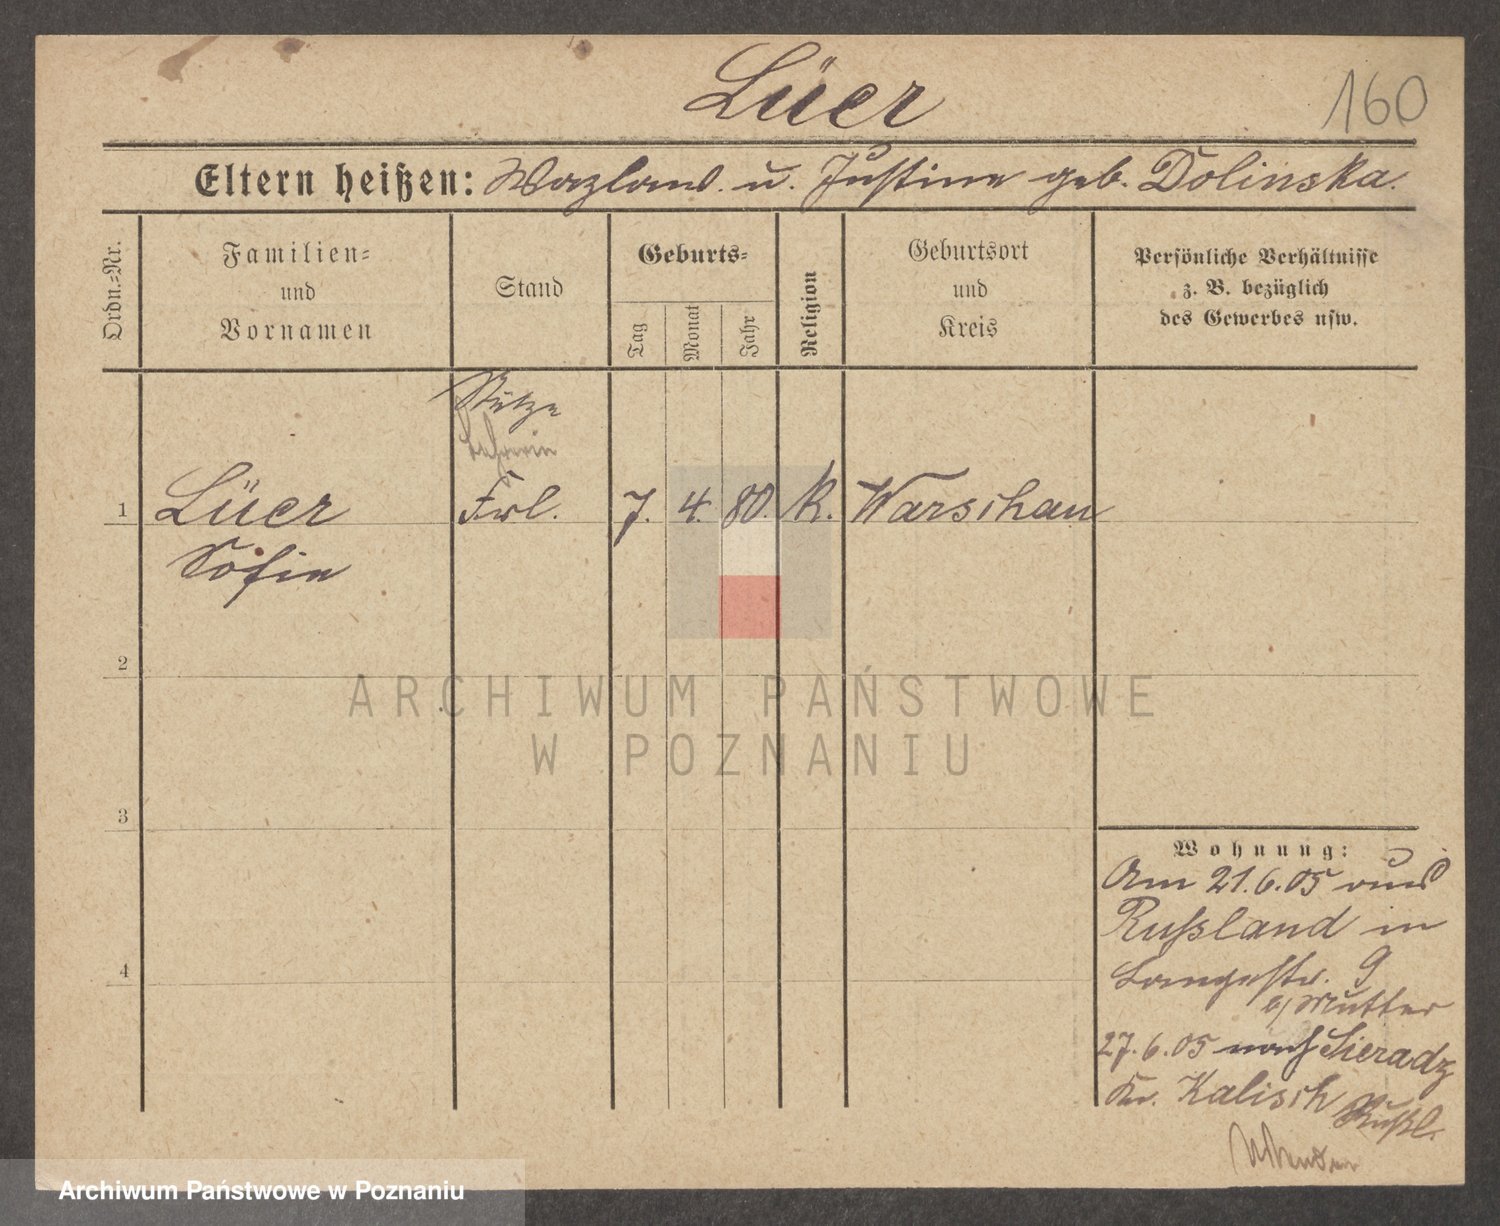 Lüer
160
Eltern heißen: Wazlaw. u. Justine geb. Dolinska.
Ordn.-Nr.
Familien-
und
Vornamen
Stand
Geburts-
Tag
Monat
Jahr
Religion
Geburtsort
und
Kreis
Persönliche Verhältnisse
z. B. bezüglich
des Gewerbes usw.
Stütze
1 Lüer Frl. 7. 4. 80. k. Warschau
Sofie
2
3
4
Wohnung:
Am 21.6.05 aus
Rußland in
Langestr. 9
b/Mutter
27.6.05 nach Sieradz
Kr. Kalisch Rußl.
ARCHIWUM PAŃSTWOWE
W POZNANIU
Archiwum Państwowe w Poznaniu